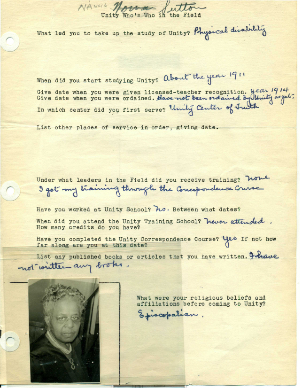 NAME Norma Sutton
Unity Who's Who in the Field
What led you to take up the study of Unity? Physical disability
When did you start studying Unity? About the year 1911
Give date when you were given licensed-teacher recognition. year 1914
Give date when you were ordained. Have not been ordained by Unity as yet.
In which center did you first serve? Unity Center of Truth
List other places of service in order, giving date.
Under what leaders in the Field did you receive training? None
I got my training through the Correspondence Course
Have you worked at Unity School? No. Between what dates?
When did you attend the Unity Training School? Never attended.
How many credits do you have?
Have you completed the Unity Correspondence Course? Yes If not how
far along are you at this date?
List any published books or articles that you have written. I have
not written any books.
What were your religious beliefs and
affiliations before coming to Unity?
Episcopalian.